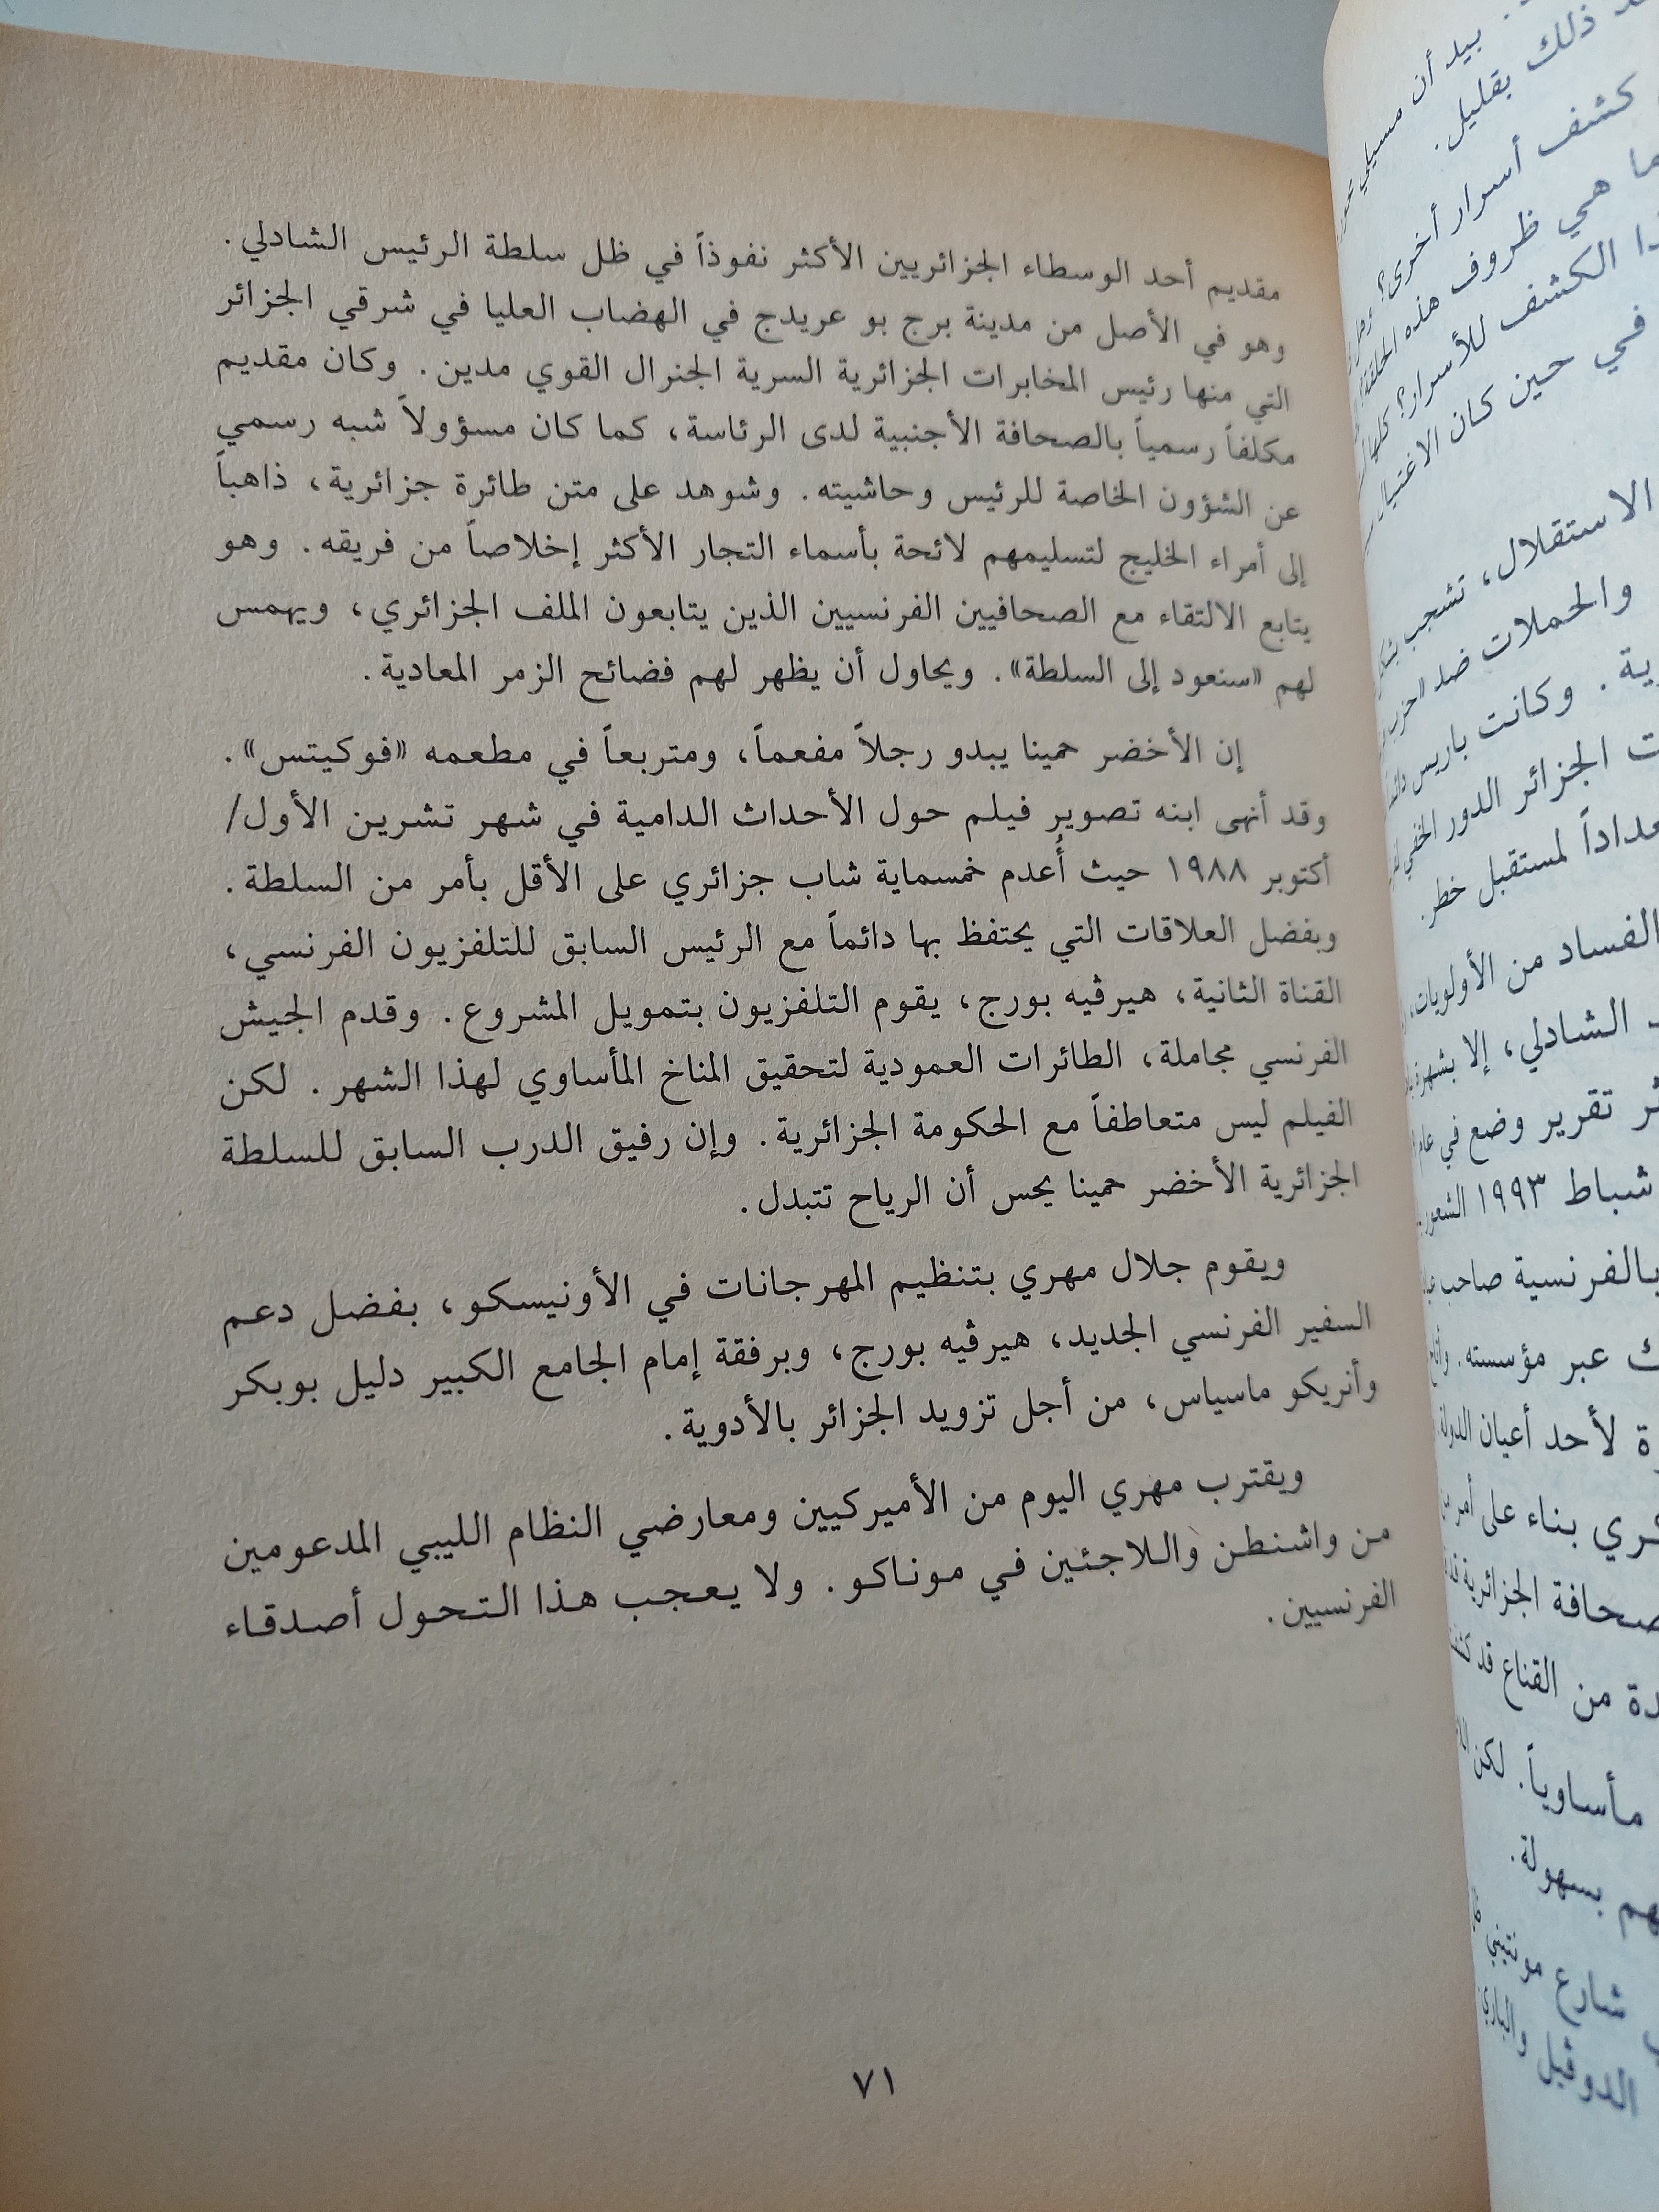 مقديم أحد الوسطاء الجزائريين الأكثر نفوذاً في ظل سلطة الرئيس الشادلي.
وهو في الأصل من مدينة برج بو عريدج في الهضاب العليا في شرقي الجزائر
التي منها رئيس المخابرات الجزائرية السرية الجنرال القوي مدين. وكان مقديم
مكلفاً رسمياً بالصحافة الأجنبية لدى الرئاسة، كما كان مسؤولاً شبه رسمي
عن الشؤون الخاصة للرئيس وحاشيته. وشوهد على متن طائرة جزائرية، ذاهباً
إلى أمراء الخليج لتسليمهم لائحة بأسماء التجار الأكثر إخلاصاً من فريقه. وهو
يتابع الالتقاء مع الصحافيين الفرنسيين الذين يتابعون الملف الجزائري، ويهمس
لهم «سنعود إلى السلطة». ويحاول أن يظهر لهم فضائح الزمر المعادية.
إن الأخضر حمينا يبدو رجلاً مفعماً، ومتربعاً في مطعمه «فوكيتس».
وقد أنهى ابنه تصوير فيلم حول الأحداث الدامية في شهر تشرين الأول/
أكتوبر ١٩٨٨ حيث أُعدم خمسماية شاب جزائري على الأقل بأمر من السلطة.
وبفضل العلاقات التي يحتفظ بها دائماً مع الرئيس السابق للتلفزيون الفرنسي،
القناة الثانية، هيرڤيه بورج، يقوم التلفزيون بتمويل المشروع. وقدم الجيش
الفرنسي مجاملة، الطائرات العمودية لتحقيق المناخ المأساوي لهذا الشهر. لكن
الفيلم ليس متعاطفاً مع الحكومة الجزائرية. وإن رفيق الدرب السابق للسلطة
الجزائرية الأخضر حمينا يحس أن الرياح تتبدل.
ويقوم جلال مهري بتنظيم المهرجانات في الأونيسكو، بفضل دعم
السفير الفرنسي الجديد، هيرڤيه بورج، وبرفقة إمام الجامع الكبير دليل بوبكر
وأنريكو ماسياس، من أجل تزويد الجزائر بالأدوية.
ويقترب مهري اليوم من الأميركيين ومعارضي النظام الليبي المدعومين
من واشنطن واللاجئين في موناكو. ولا يعجب هذا التحول أصدقاء
الفرنسيين.
٧١
بيد أن مسيلي
ذلك بقليل.
كشف أسرار أخرى؟
هي ظروف هذه الحلقة؟
الكشف للأسرار؟
في حين كان الاغتيال
الاستقلال، تشجب
والحملات ضد
وكانت باريس
الجزائر الدور الخفي
لمستقبل خطر.
الفساد من الأولويات،
الشادلي، إلا بشهرة
تقرير وضع في عام
شباط ١٩٩٣
بالفرنسية صاحب
عبر مؤسسته.
لأحد أعيان الدولة.
بناء على أمر
الجزائرية
من القناع قد
مأساوياً. لكن
بسهولة.
شارع مونتيني